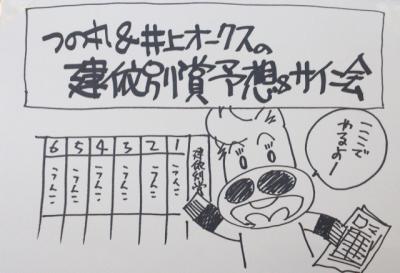 つの丸&井上オークスの
建依別賞予想&サイン会
ここで
やるよー
建依別賞
1 うんこ
2 うんこ
3 うんこ
4 うんこ
5 うんこ
6 うんこ